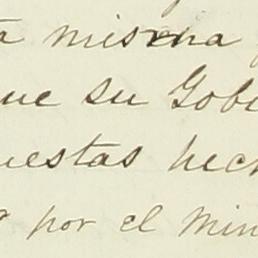 a misma
que su Gobi
uestas hech
por el Min